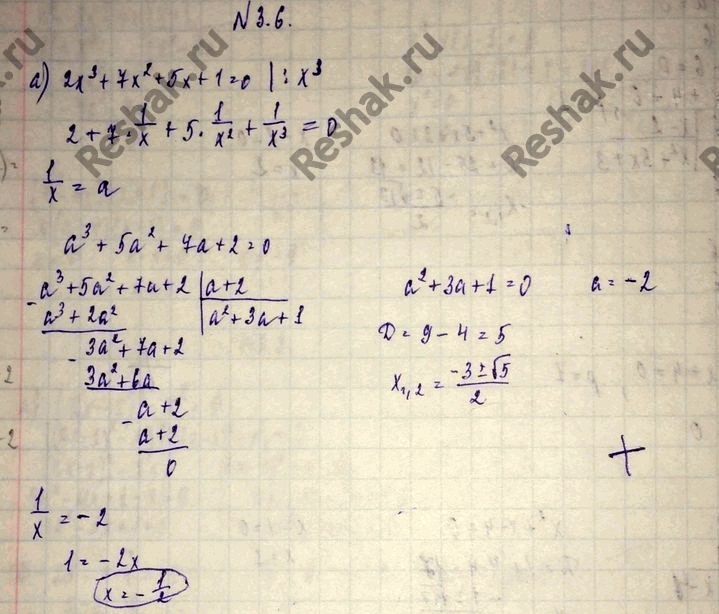 N 3.6.
а) 2x³ + 7x² + 5x + 1 = 0 | : x³
2 + 7 · 1/x + 5 · 1/x² + 1/x³ = 0
1/x = a
a³ + 5a² + 7a + 2 = 0
- a³ + 5a² + 7a + 2 | a + 2
a³ + 2a² | a² + 3a + 1
- 3a² + 7a + 2
3a² + 6a
- a + 2
a + 2
0
a² + 3a + 1 = 0 a = -2
D = 9 - 4 = 5
x₁,₂ = (-3 ± √5)/2
+
1/x = -2
1 = -2x
x = -1/2
Reshak.ru
Reshak.ru
Reshak.ru
Reshak.ru